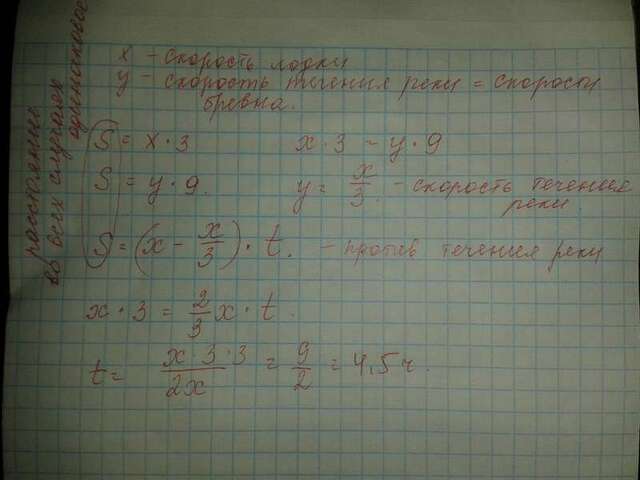 x - скорость лодки
y - скорость течения реки = скорости
бревна.
расстояние
во всех случаях
одинаковое
S = x · 3
x · 3 = y · 9
S = y · 9.
y = x/3 - скорость течения
реки.
S = (x - x/3) · t. - против течения реки
x · 3 = 2/3 x · t.
t = x·3·3/2x = 9/2 = 4,5 ч.